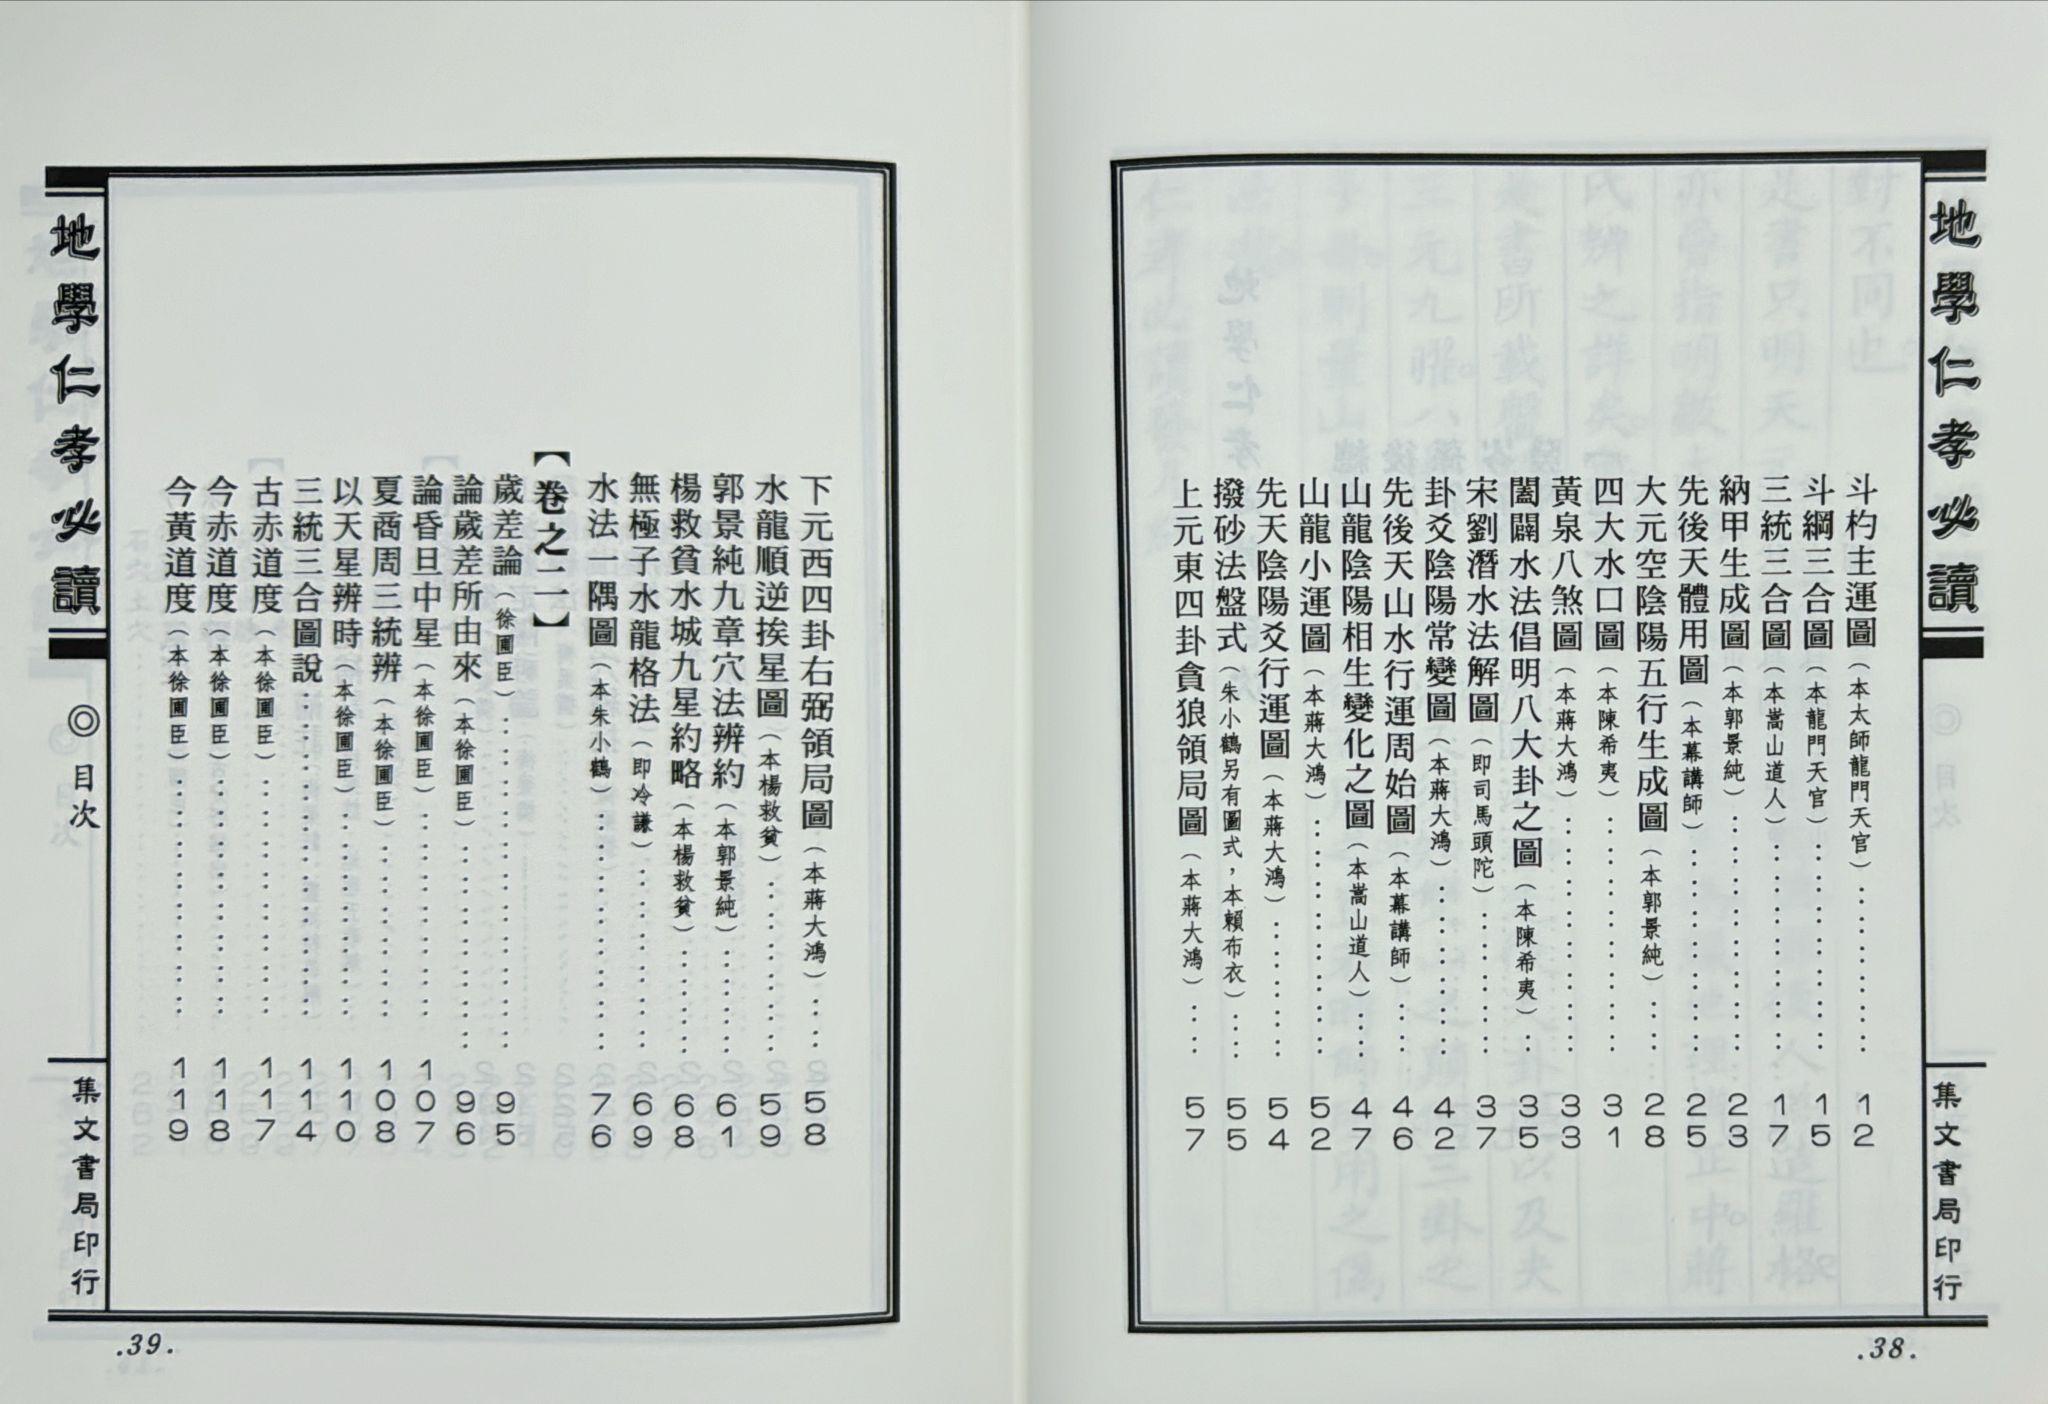 地學仁孝必讀
◎目次
集文書局印行
斗杓主運圖（本太師龍門天官）…………12
斗綱三合圖（本龍門天官）…………15
三統三合圖（本嵩山道人）…………17
納甲生成圖（本郭景純）…………23
先後天體用圖（本幕講師）…………25
大元空陰陽五行生成圖（本郭景純）…………28
四大水口圖（本陳希夷）…………31
黃泉八煞圖（本蔣大鴻）…………33
闔闢水法倡明八大卦之圖（本陳希夷）…………35
宋劉潛水法解圖（即司馬頭陀）…………37
卦爻陰陽常變圖（本蔣大鴻）…………42
先後天山水行運周始圖（本幕講師）…………46
山龍陰陽相生變化之圖（本嵩山道人）…………47
山龍小運圖（本蔣大鴻）…………52
先天陰陽爻行運圖（本蔣大鴻）…………54
撥砂法盤式（朱小鶴另有圖式，本賴布衣）…………55
上元東四卦貪狼領局圖（本蔣大鴻）…………57
.38.
下元西四卦右弼領局圖（本蔣大鴻）…………58
水龍順逆挨星圖（本楊救貧）…………59
郭景純九章穴法辨約（本郭景純）…………61
楊救貧水城九星約略（本楊救貧）…………68
無極子水龍格法（即冷謙）…………69
水法一隅圖（本朱小鶴）…………76
【卷之二】
歲差論（徐圃臣）…………95
論歲差所由來（本徐圃臣）…………96
論昏旦中星（本徐圃臣）…………107
夏商周三統辨（本徐圃臣）…………108
以天星辨時（本徐圃臣）…………110
三統三合圖說…………114
古赤道度（本徐圃臣）…………117
今赤道度（本徐圃臣）…………118
今黃道度（本徐圃臣）…………119
地學仁孝必讀
◎目次
集文書局印行
.39.